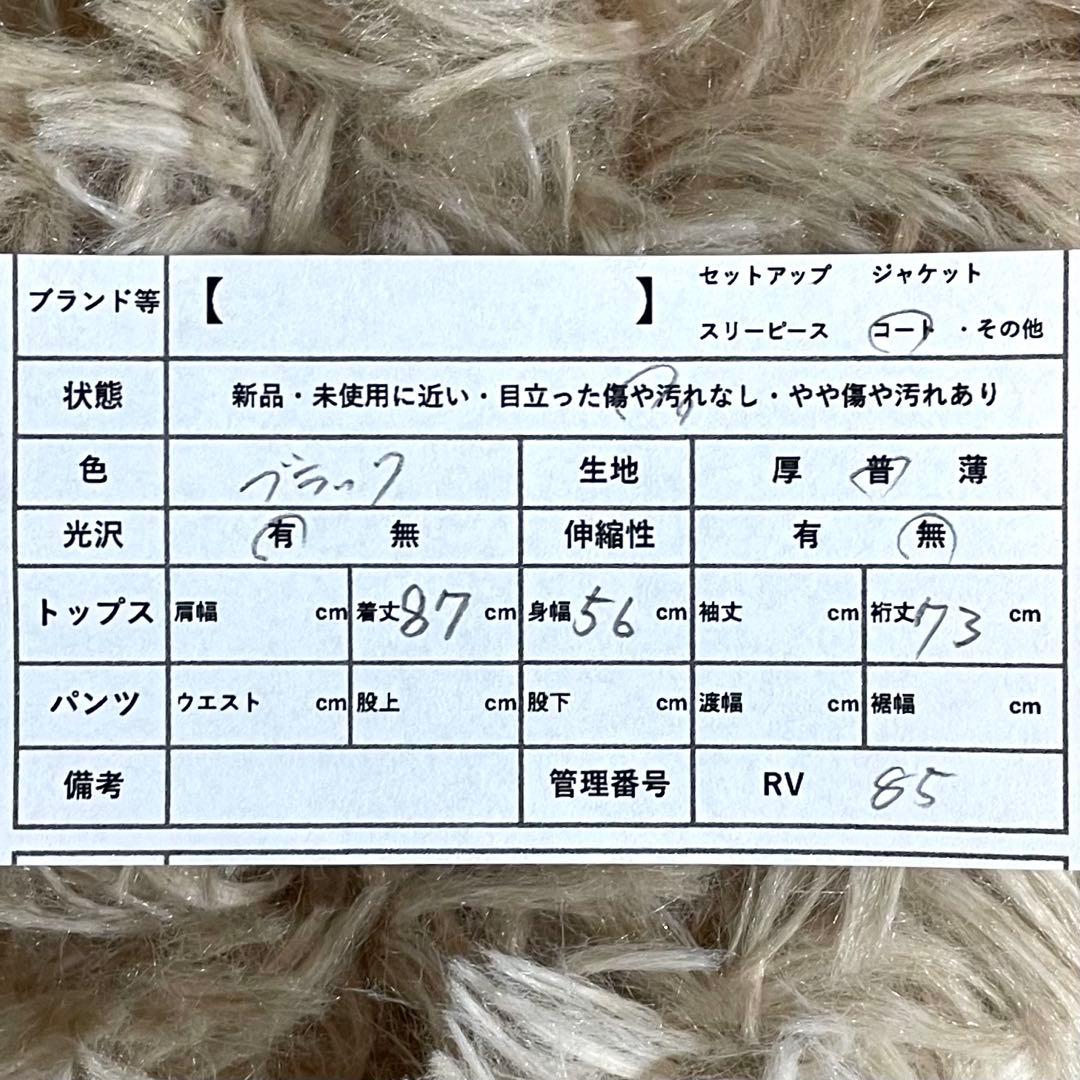 ブランド等 【 】 セットアップ ジャケット
スリーピース コート ・その他
状態 新品・未使用に近い・目立った傷や汚れなし・やや傷や汚れあり
色 ブラック 生地 厚 普 薄
光沢 有 無 伸縮性 有 無
トップス 肩幅 cm 着丈 87 cm 身幅 56 cm 袖丈 cm 裄丈 73 cm
パンツ ウエスト cm 股上 cm 股下 cm 渡幅 cm 裾幅 cm
備考 管理番号 RV 85